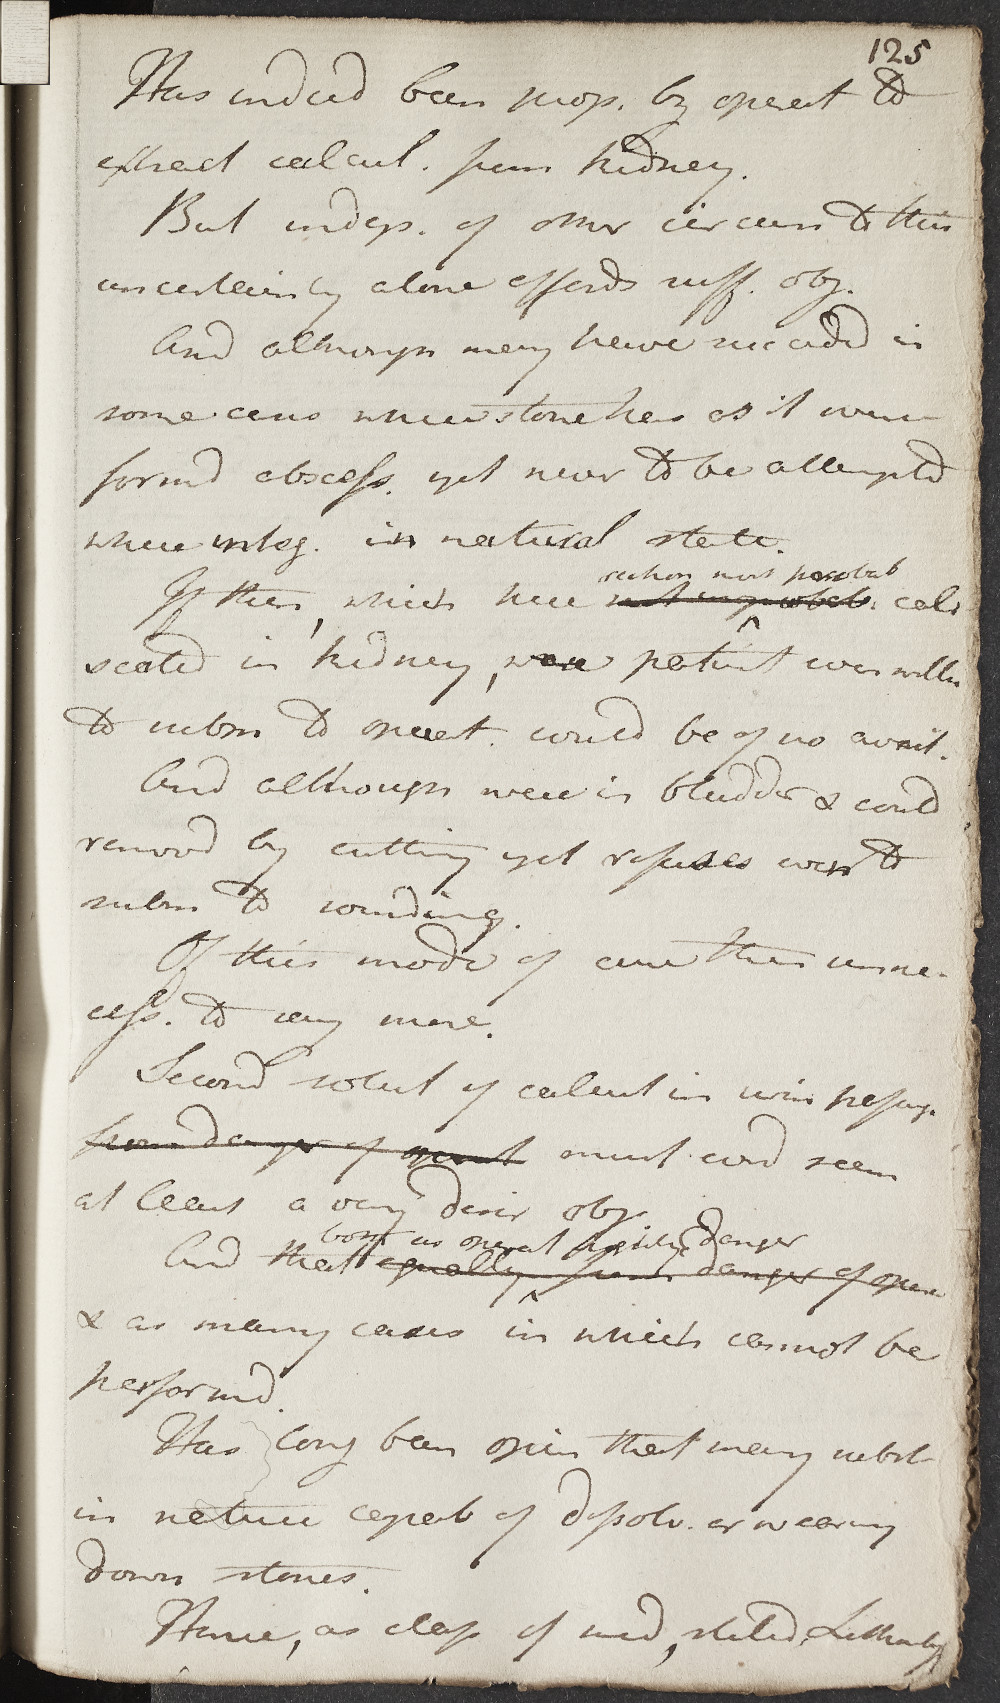 125
Has indeed been prop. by operat to
extract calcul. from kidney.
But indep. of other circum to this
uncertainty alone affords suff. obj.
And although may have succeded in
some cases where stone has as it were
formd abscess. yet never to be attemptd
where integ. in natural state.
reckon most probab
If then, which here not improbab. calc
seated in kidney, were patient even willn
to subm to operat. could be of no avail.
And although were in bladder & could
removd by cutting yet refuses even to
subm to sounding.
Of this mode of cure then unne-
cess. to say more.
Second solut of calcul in urin passag.
from danger of operat must cord seem
at least a very desir obj.
both as operat highly danger
And that equally from danger of opera
& as many cases in which cannot be
performd.
Has long been opin that many subst
in nature capab of dissolv. or wearing
down stones.
Hence, as class of med, stiled Lithontr